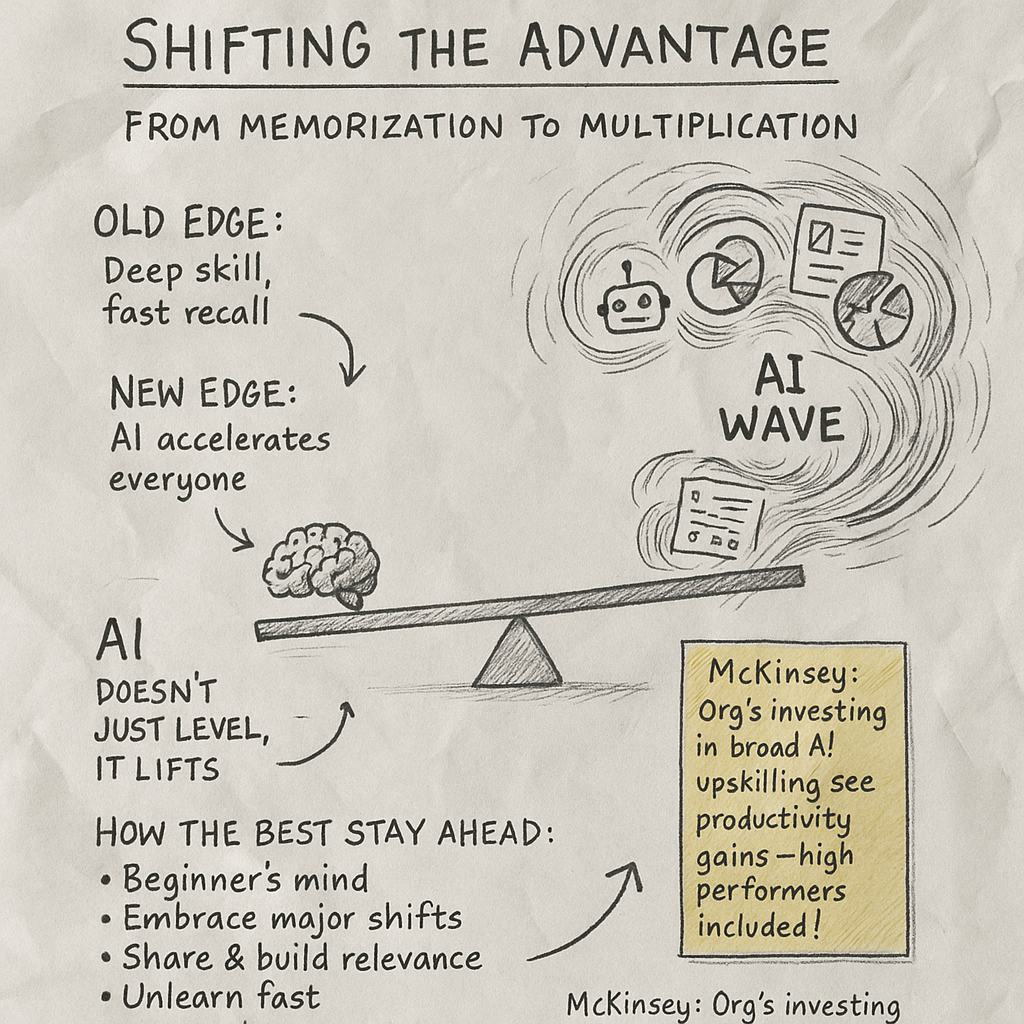 SHIFTING THE ADVANTAGE
FROM MEMORIZATION TO MULTIPLICATION
OLD EDGE:
Deep skill,
fast recall
NEW EDGE:
AI accelerates
everyone
AI
WAVE
AI
DOESN'T
JUST LEVEL,
IT LIFTS
HOW THE BEST STAY AHEAD:
• Beginner's mind
• Embrace major shifts
• Share & build relevance
• Unlearn fast
McKinsey:
Org's investing
in broad A!
upskilling see
productivity
gains—high
performers
included!
McKinsey: Org's investing